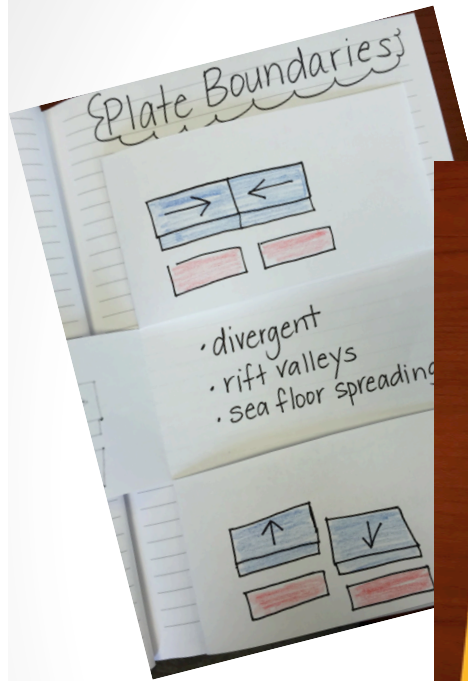 {Plate Boundaries}
• divergent
• rift valleys
• sea floor spreading